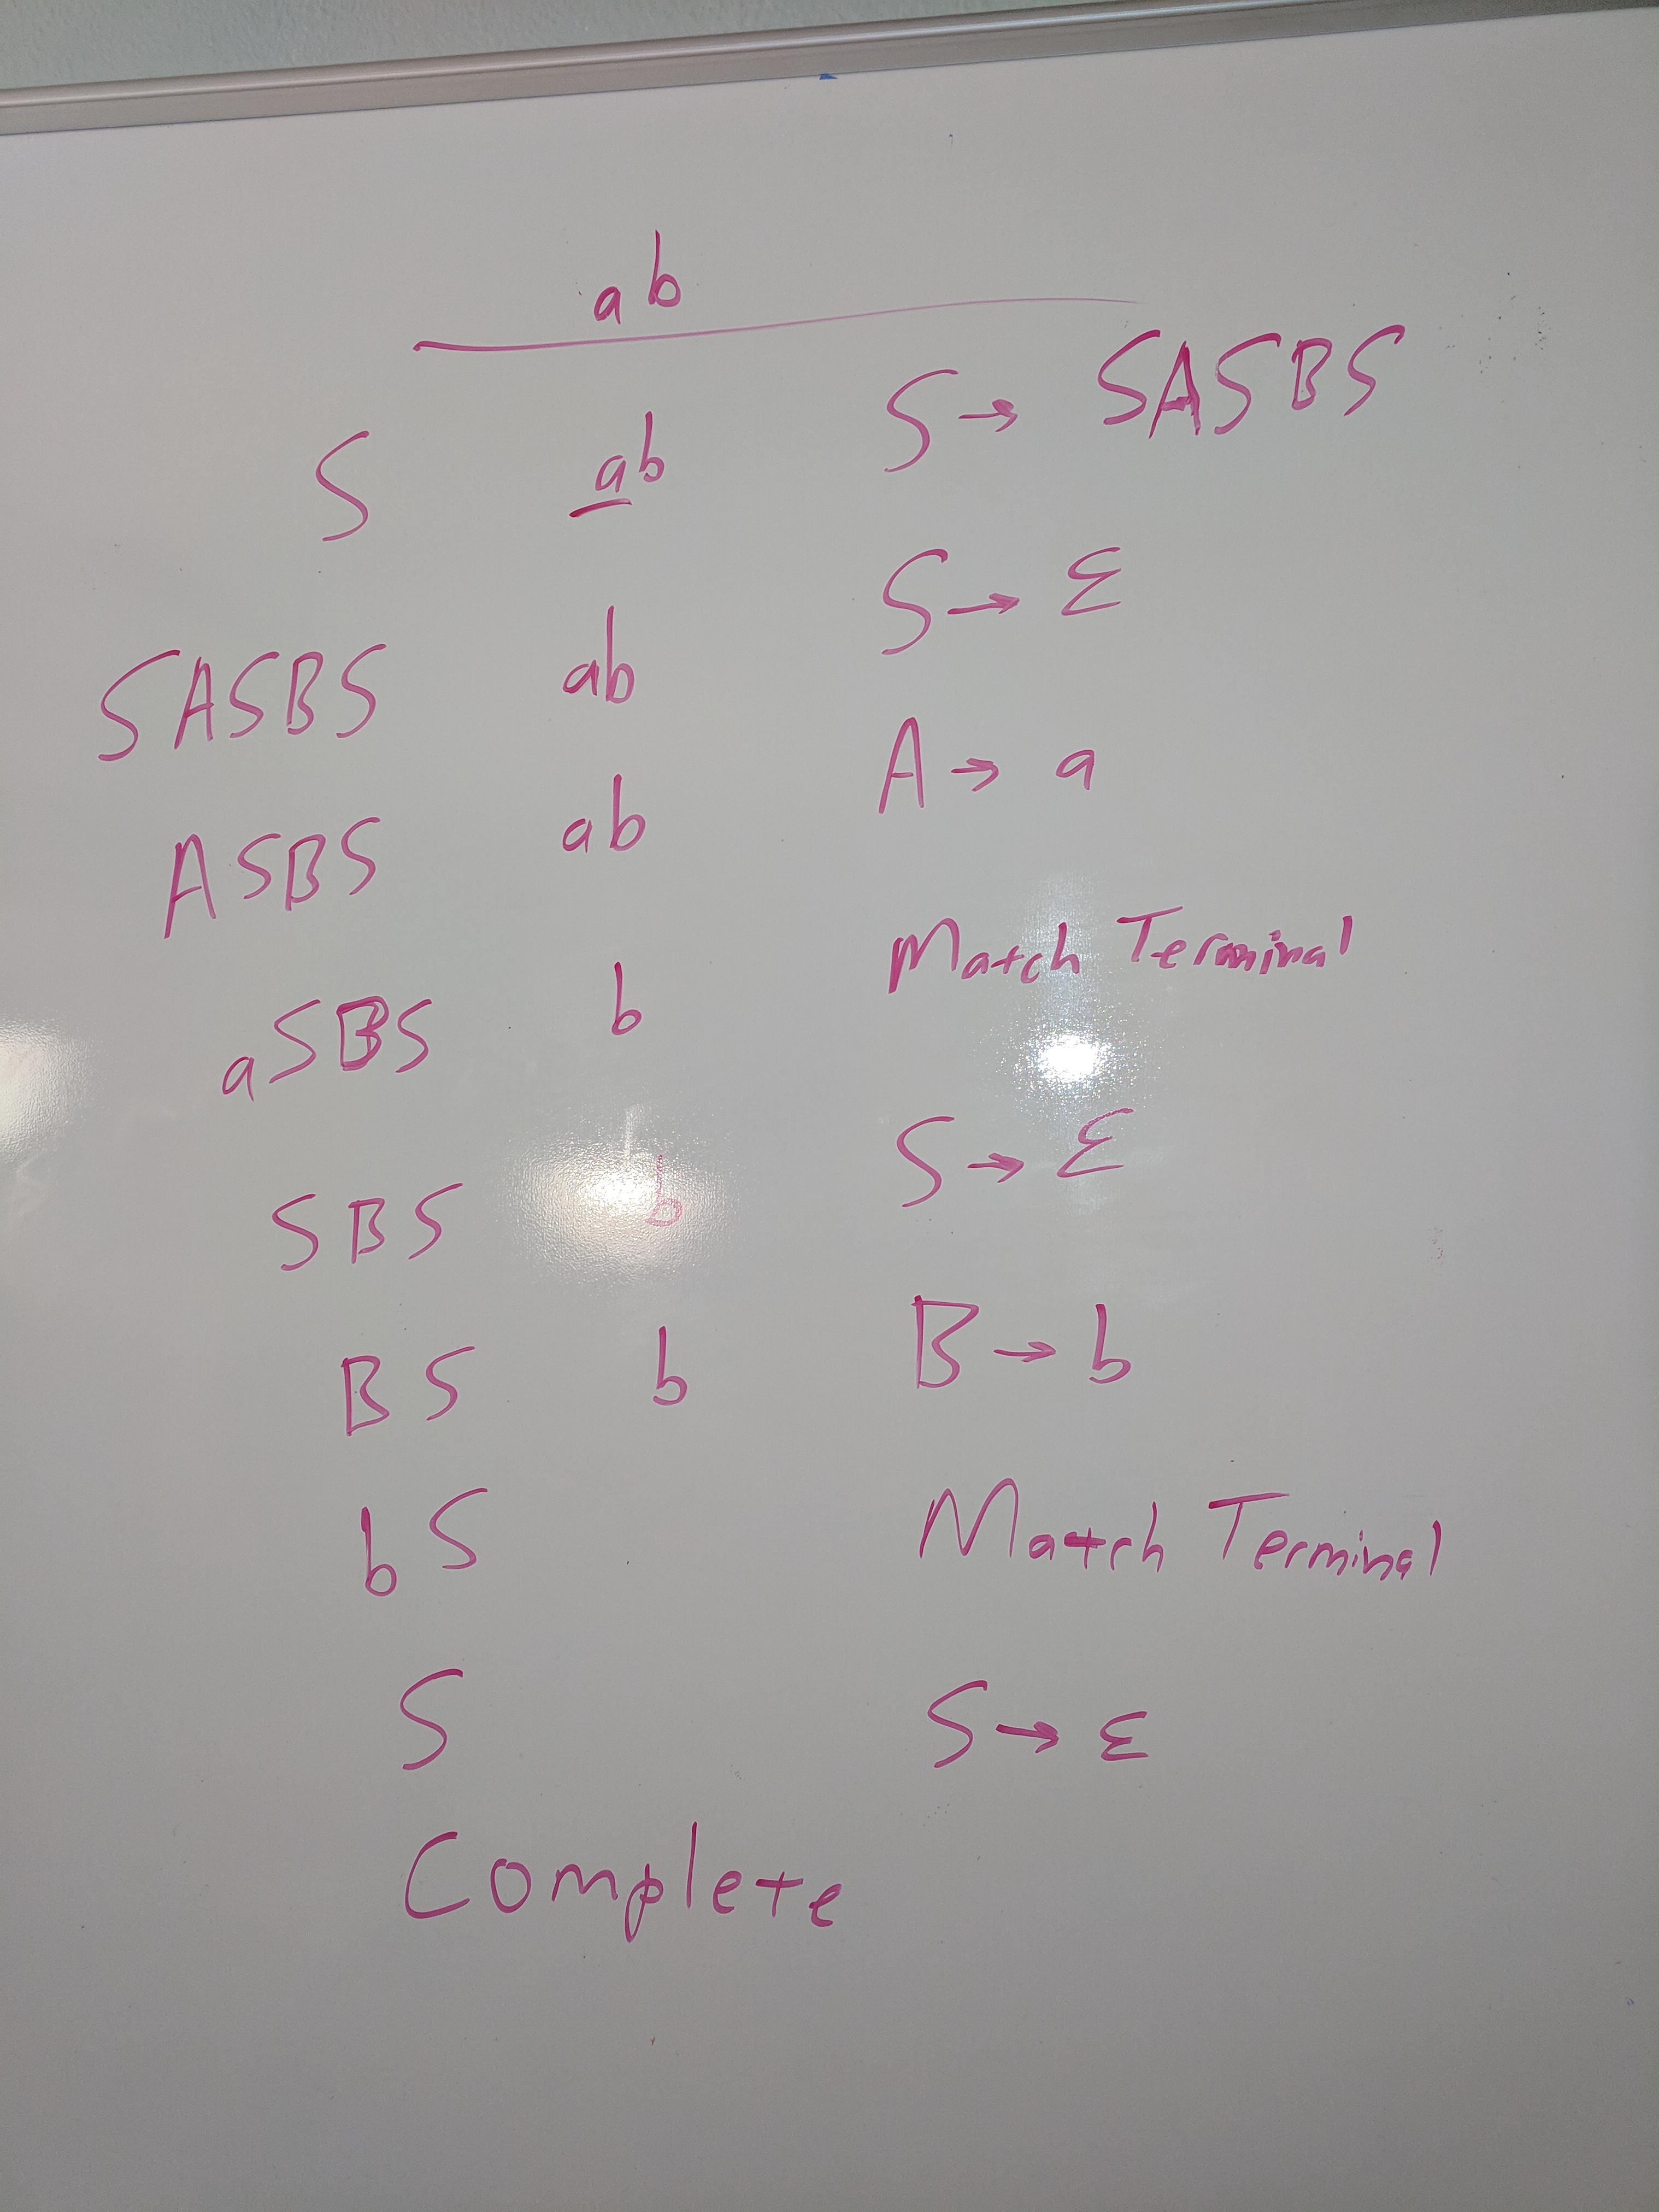 ab
S ab S → SASBS
SASBS ab S → ε
ASBS ab A → a
aSBS b Match Terminal
SBS b S → ε
BS b B → b
bS Match Terminal
S S → ε
Complete